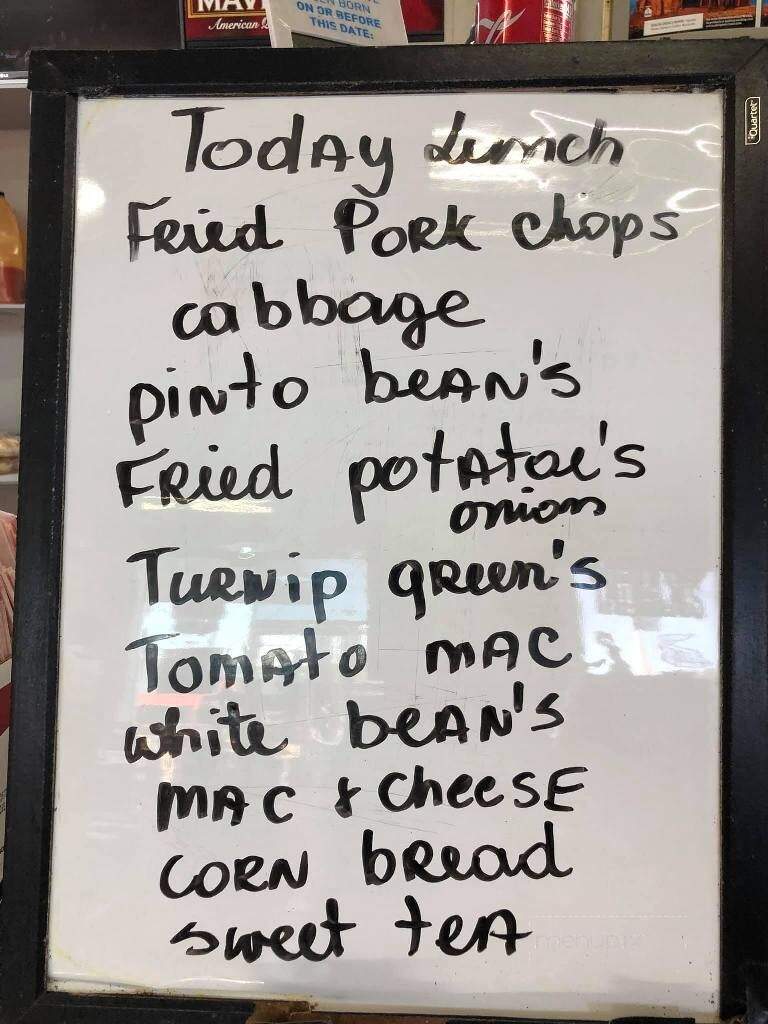 MAV
American
EN BORN
ON OR BEFORE
THIS DATE:
Quartet
Today Lunch
Fried Pork chops
cabbage
pinto beAN's
Fried potatoe's
onions
Turnip green's
Tomato MAC
white beAN's
MAC & CheesE
CORN bread
sweet teA
menupix